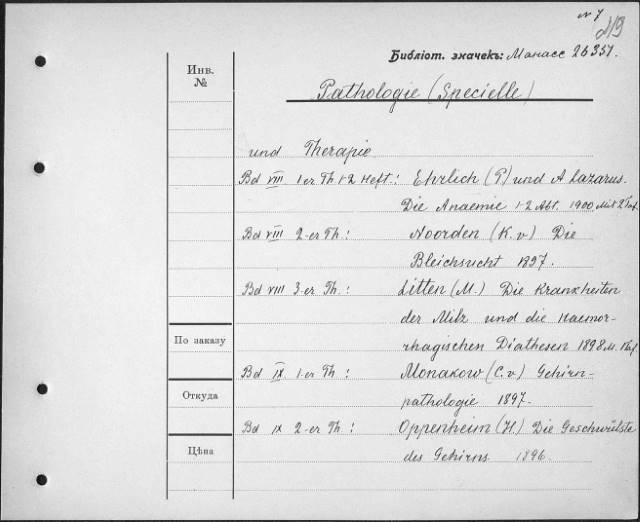 N 7
213
Библіот. значекъ: Манасс 26351.
Инв.
№
Pathologie (Specielle)
und Therapie
Bd VIII 1-er Th 1-2 Heft: Ehrlich (P) und A Lazarus.
Die Anaemie 1-2 Abt. 1900. Mit 2 Taf.
Bd VIII 2-er Th: Noorden (K. v) Die
Bleichsucht 1897.
Bd VIII 3-er Th: Litten (M.) Die Krankheiten
der Milz und die Haemor-
rhagischen Diathesen 1898 M. 1 Taf.
По заказу
Bd IX 1-er Th: Monakow (C. v) Gehirn-
pathologie 1897.
Откуда
Bd IX 2-er Th: Oppenheim (H) Die Geschwülste
des Gehirns 1896.
Цѣна